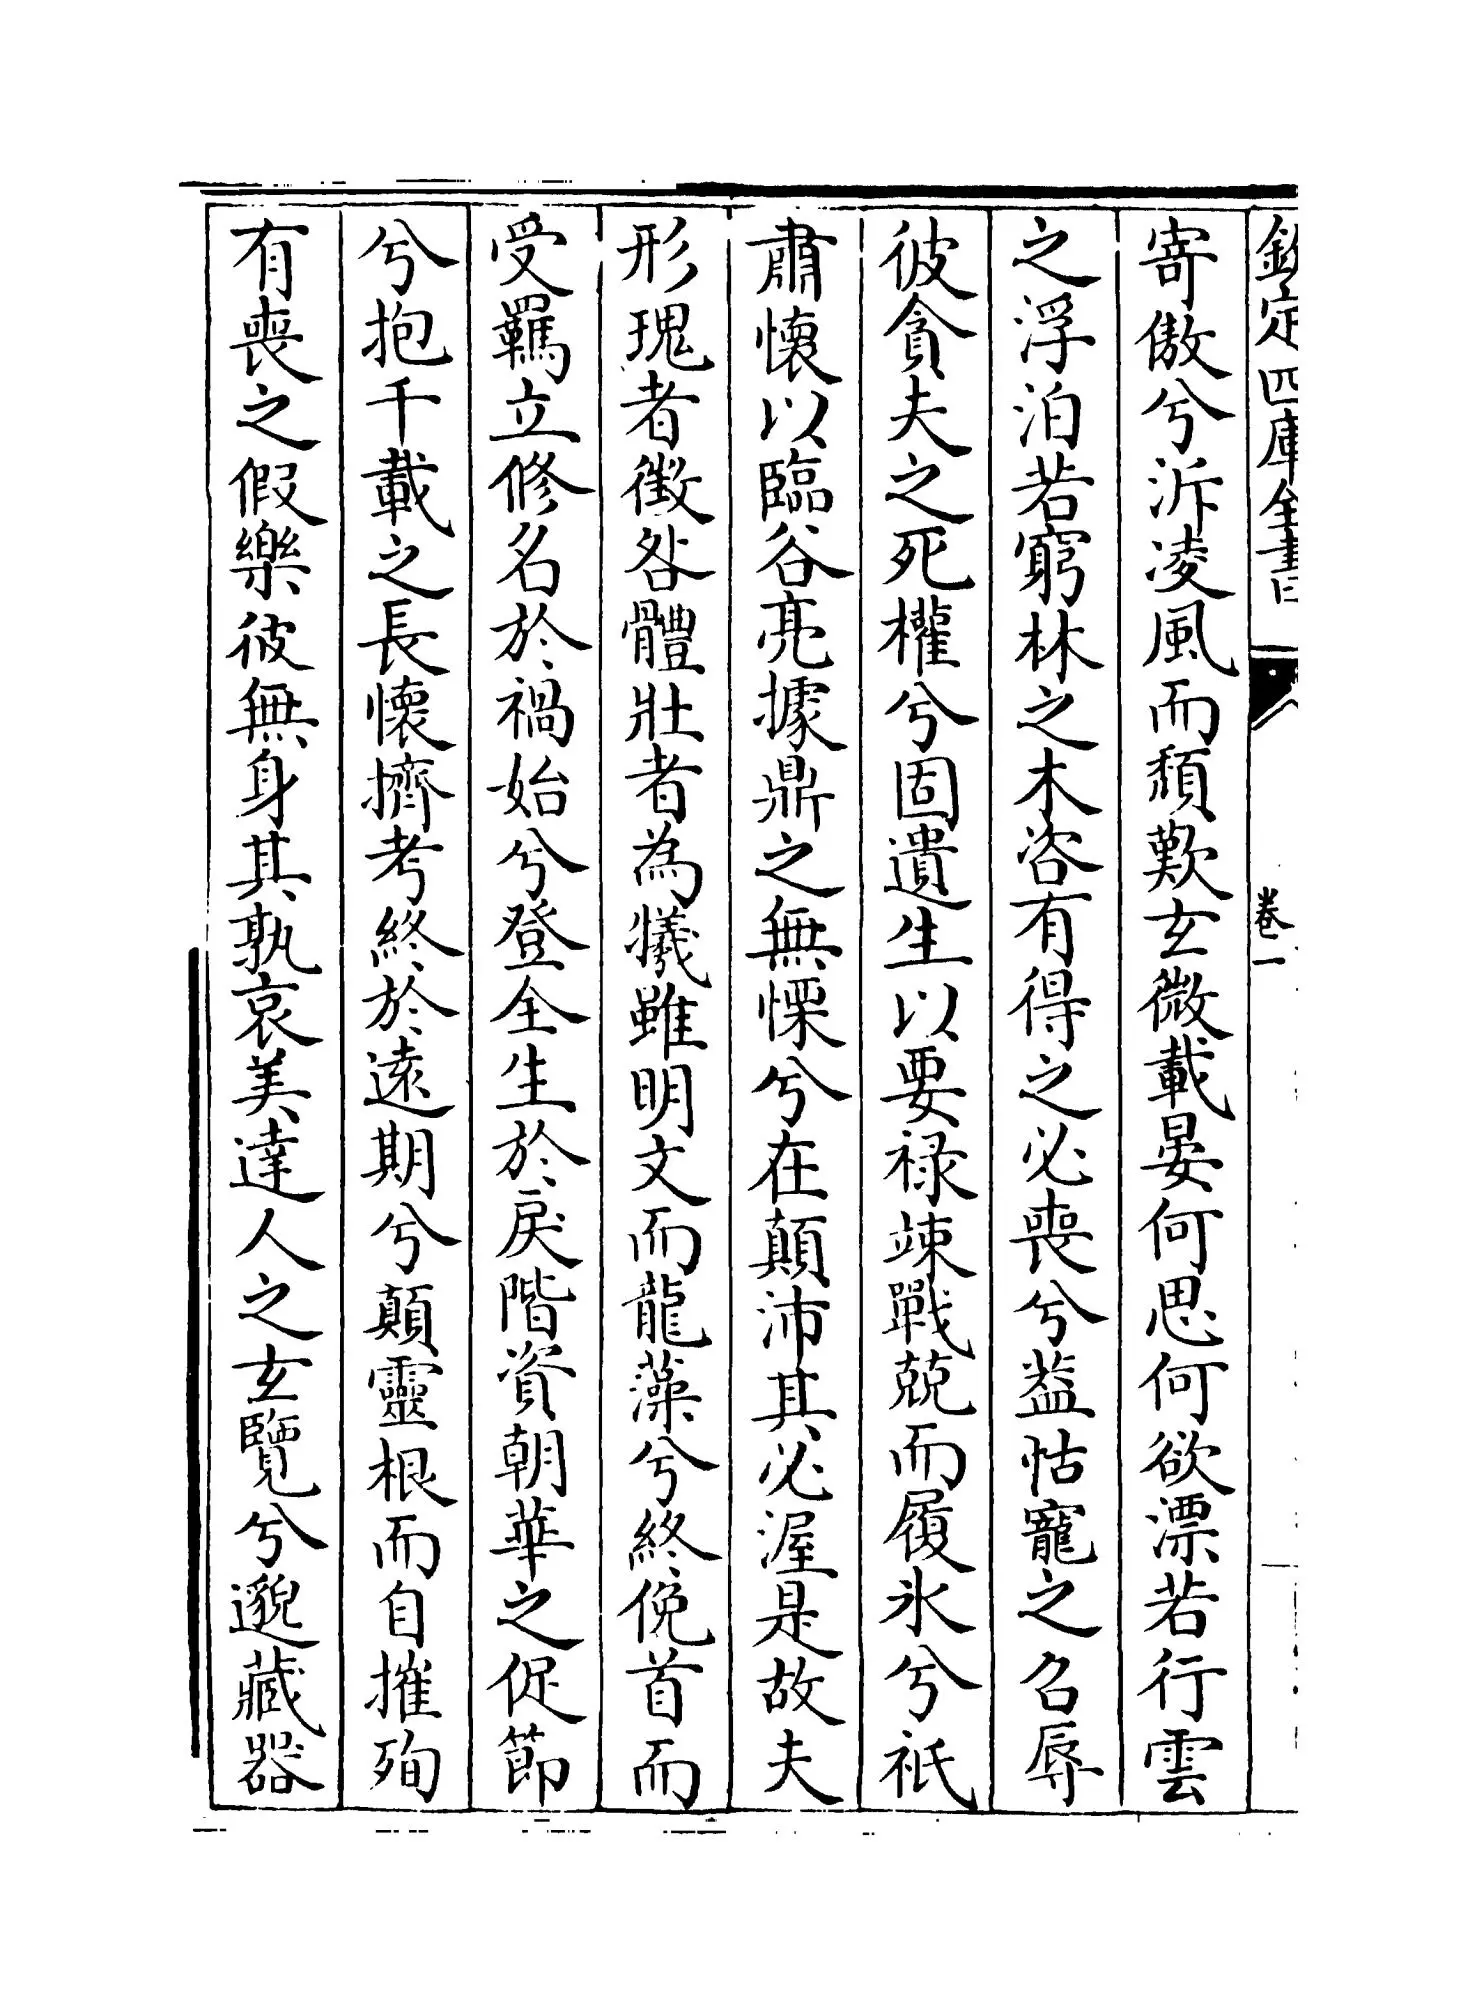 欽定四庫全書
卷一
寄傲兮泝凌風而頽歎玄微載晏何思何欲漂若行雲
之浮泊若窮林之木咨有得之必喪兮益怙寵之名辱
彼貪夫之死權兮固遺生以要禄竦戰兢而履氷兮祇
肅懷以臨谷亮據鼎之無慄兮在顛沛其必渥是故夫
形瑰者徵咎體壯者為犧雖明文而龍藻兮終俛首而
受羈立修名於禍始兮登全生於戾階資朝華之促節
兮抱千載之長懷擠考終於遠期兮顛靈根而自摧殉
有喪之假樂彼無身其孰哀美達人之玄覽兮邈藏器